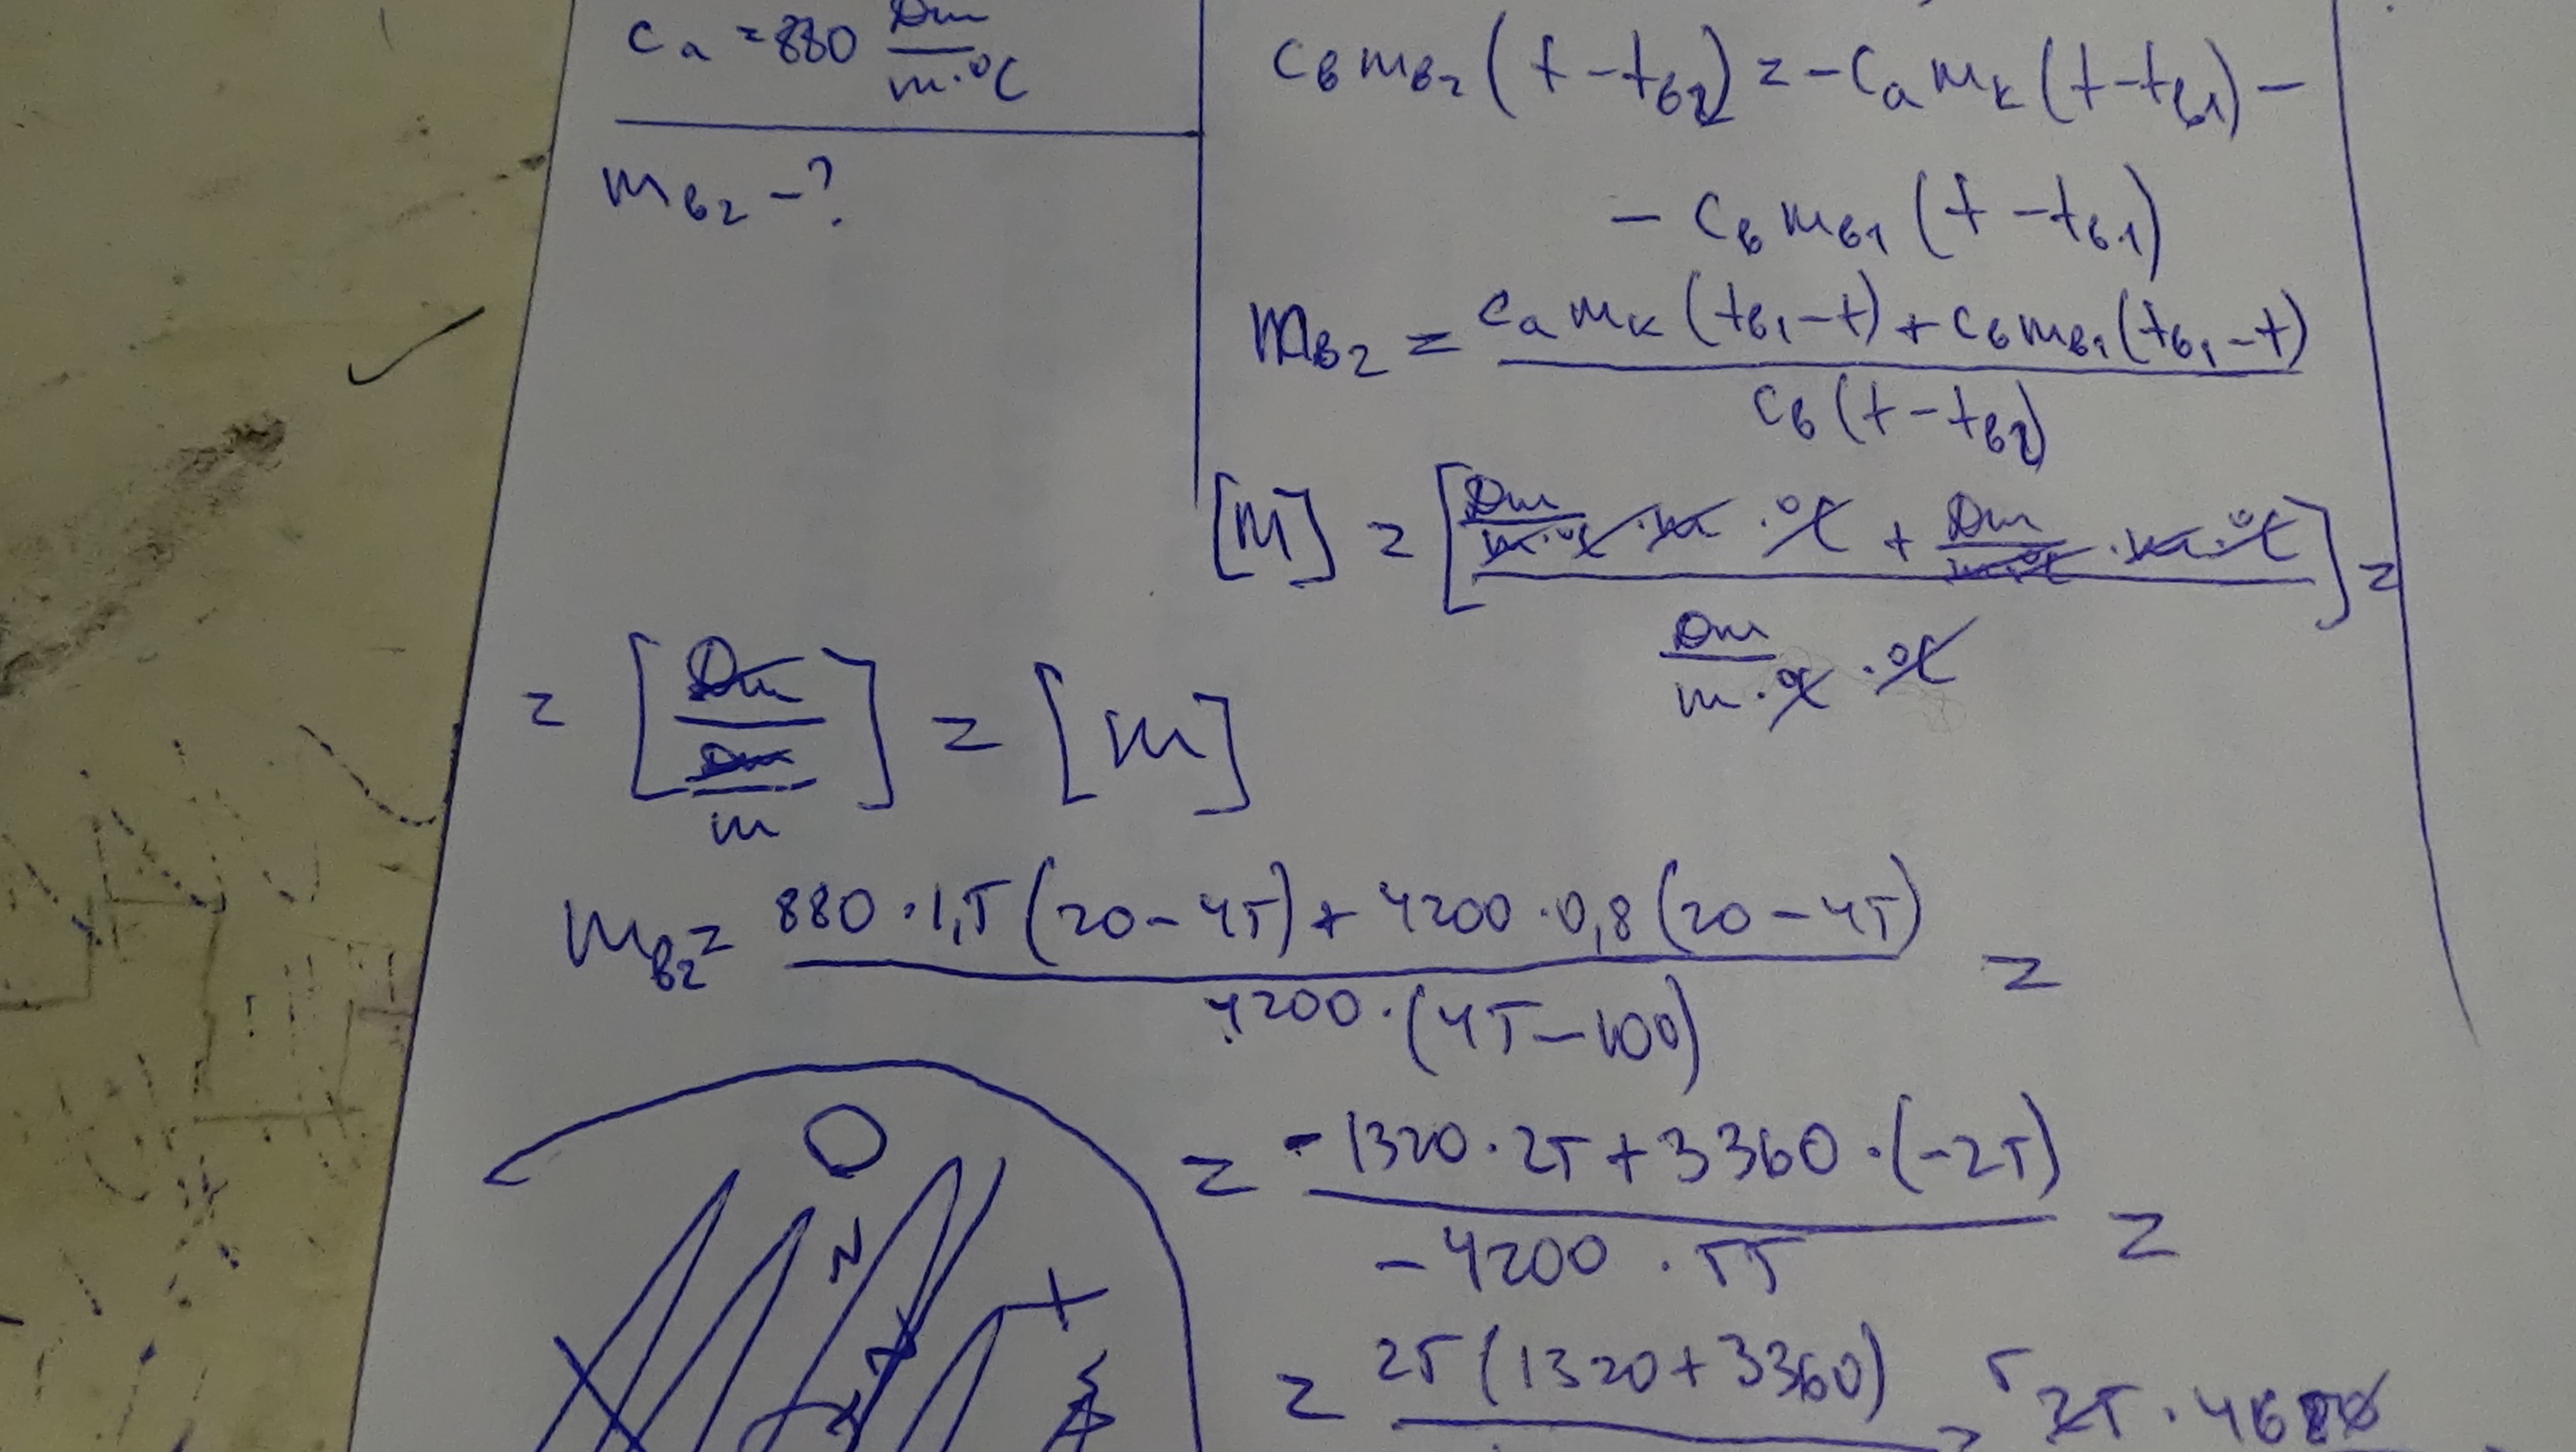 c_a = 880 Dm/m·°C
m_в2 - ?
c_в m_в2 (t - t_в2) = - c_a m_к (t - t_в1) -
- c_в m_в1 (t - t_в1)
m_в2 = (c_a m_к (t_в1 - t) + c_в m_в1 (t_в1 - t)) / (c_в (t - t_в2))
[m] = [(Dm/m·°C · m · °C + Dm/m·°C · m · °C) / (Dm/m·°C · °C)] =
= [Dm / (Dm/m)] = [m]
m_в2 = (880 · 1,5 (20 - 45) + 4200 · 0,8 (20 - 45)) / (4200 · (45 - 100)) =
= (-1320 · 25 + 3360 · (-25)) / (-4200 · 55) =
= 25 (1320 + 3360) = 5 25 · 4680